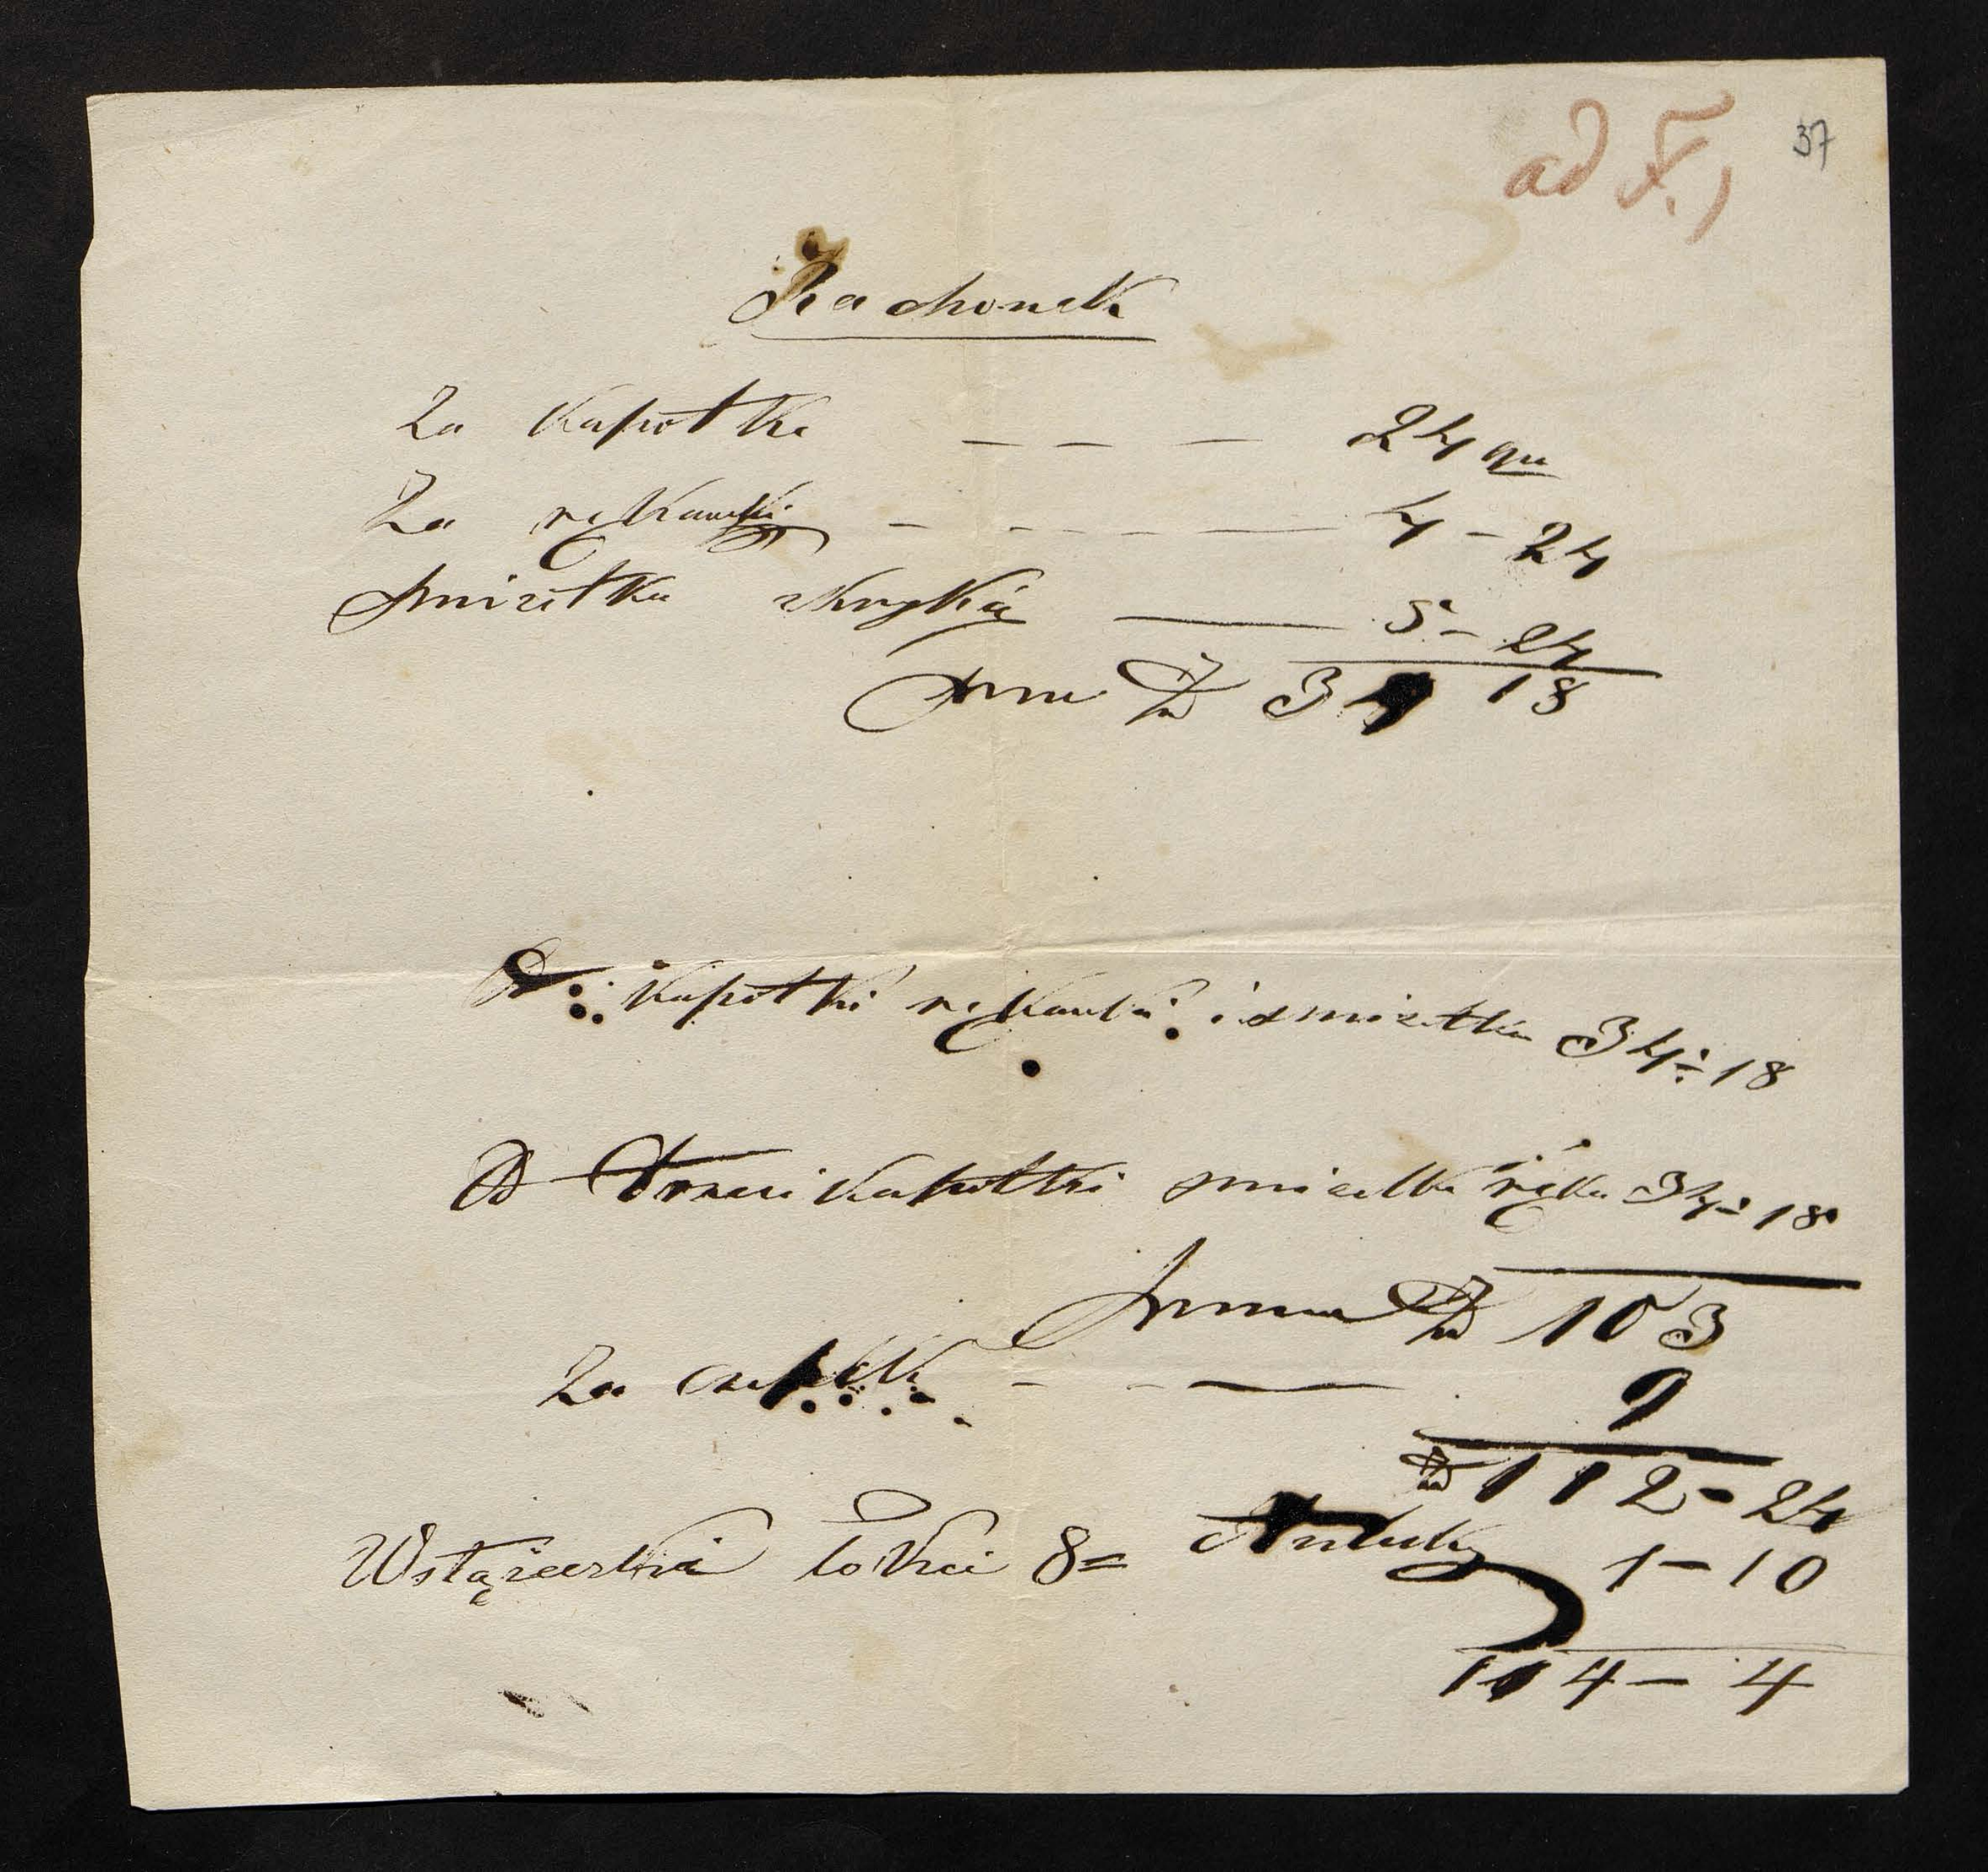 ad F.)
37
Rachonek
Za kapotke — — — 24 gu
Za rękawki — — — — 4 – 24
śmizetka — 5 – 24
Suma Zł 34 18
D kapotki rękawki i szmizetka 34 – 18
D kapotki szmizetka ręka 34 – 18
Summa Zł 103
Za — — — 9
Zł 112 – 24
Wstążeczki łokci 8 = 1 – 10
114 – 4